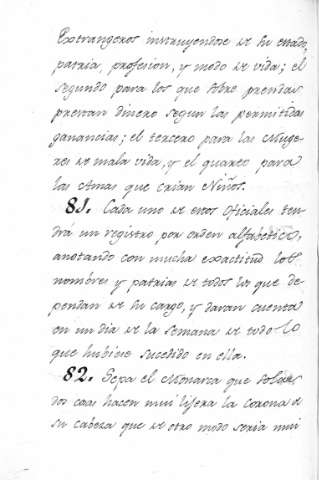 Extrangeros instruyendose de su estado,
patria, profesion, y modo de vida; el
segundo para los que sobre prendas
prestan dinero segun las permitidas
ganancias; el tercero para las Muge-
res de mala vida, y el quarto para
las Amas que crian Niños.
81. Cada uno de estos oficiales ten-
drá un registro por orden alfabetico,
anotando con mucha exactitud los
nombres y patrias de todos los que de-
pendan de su cargo, y daran cuenta
en un dia de la semana de todo lo
que hubiese sucedido en ella.
82. Sepa el Monarca que
dos cosas hacen mui lijera la Corona de
su cabeza que de otro modo seria mui